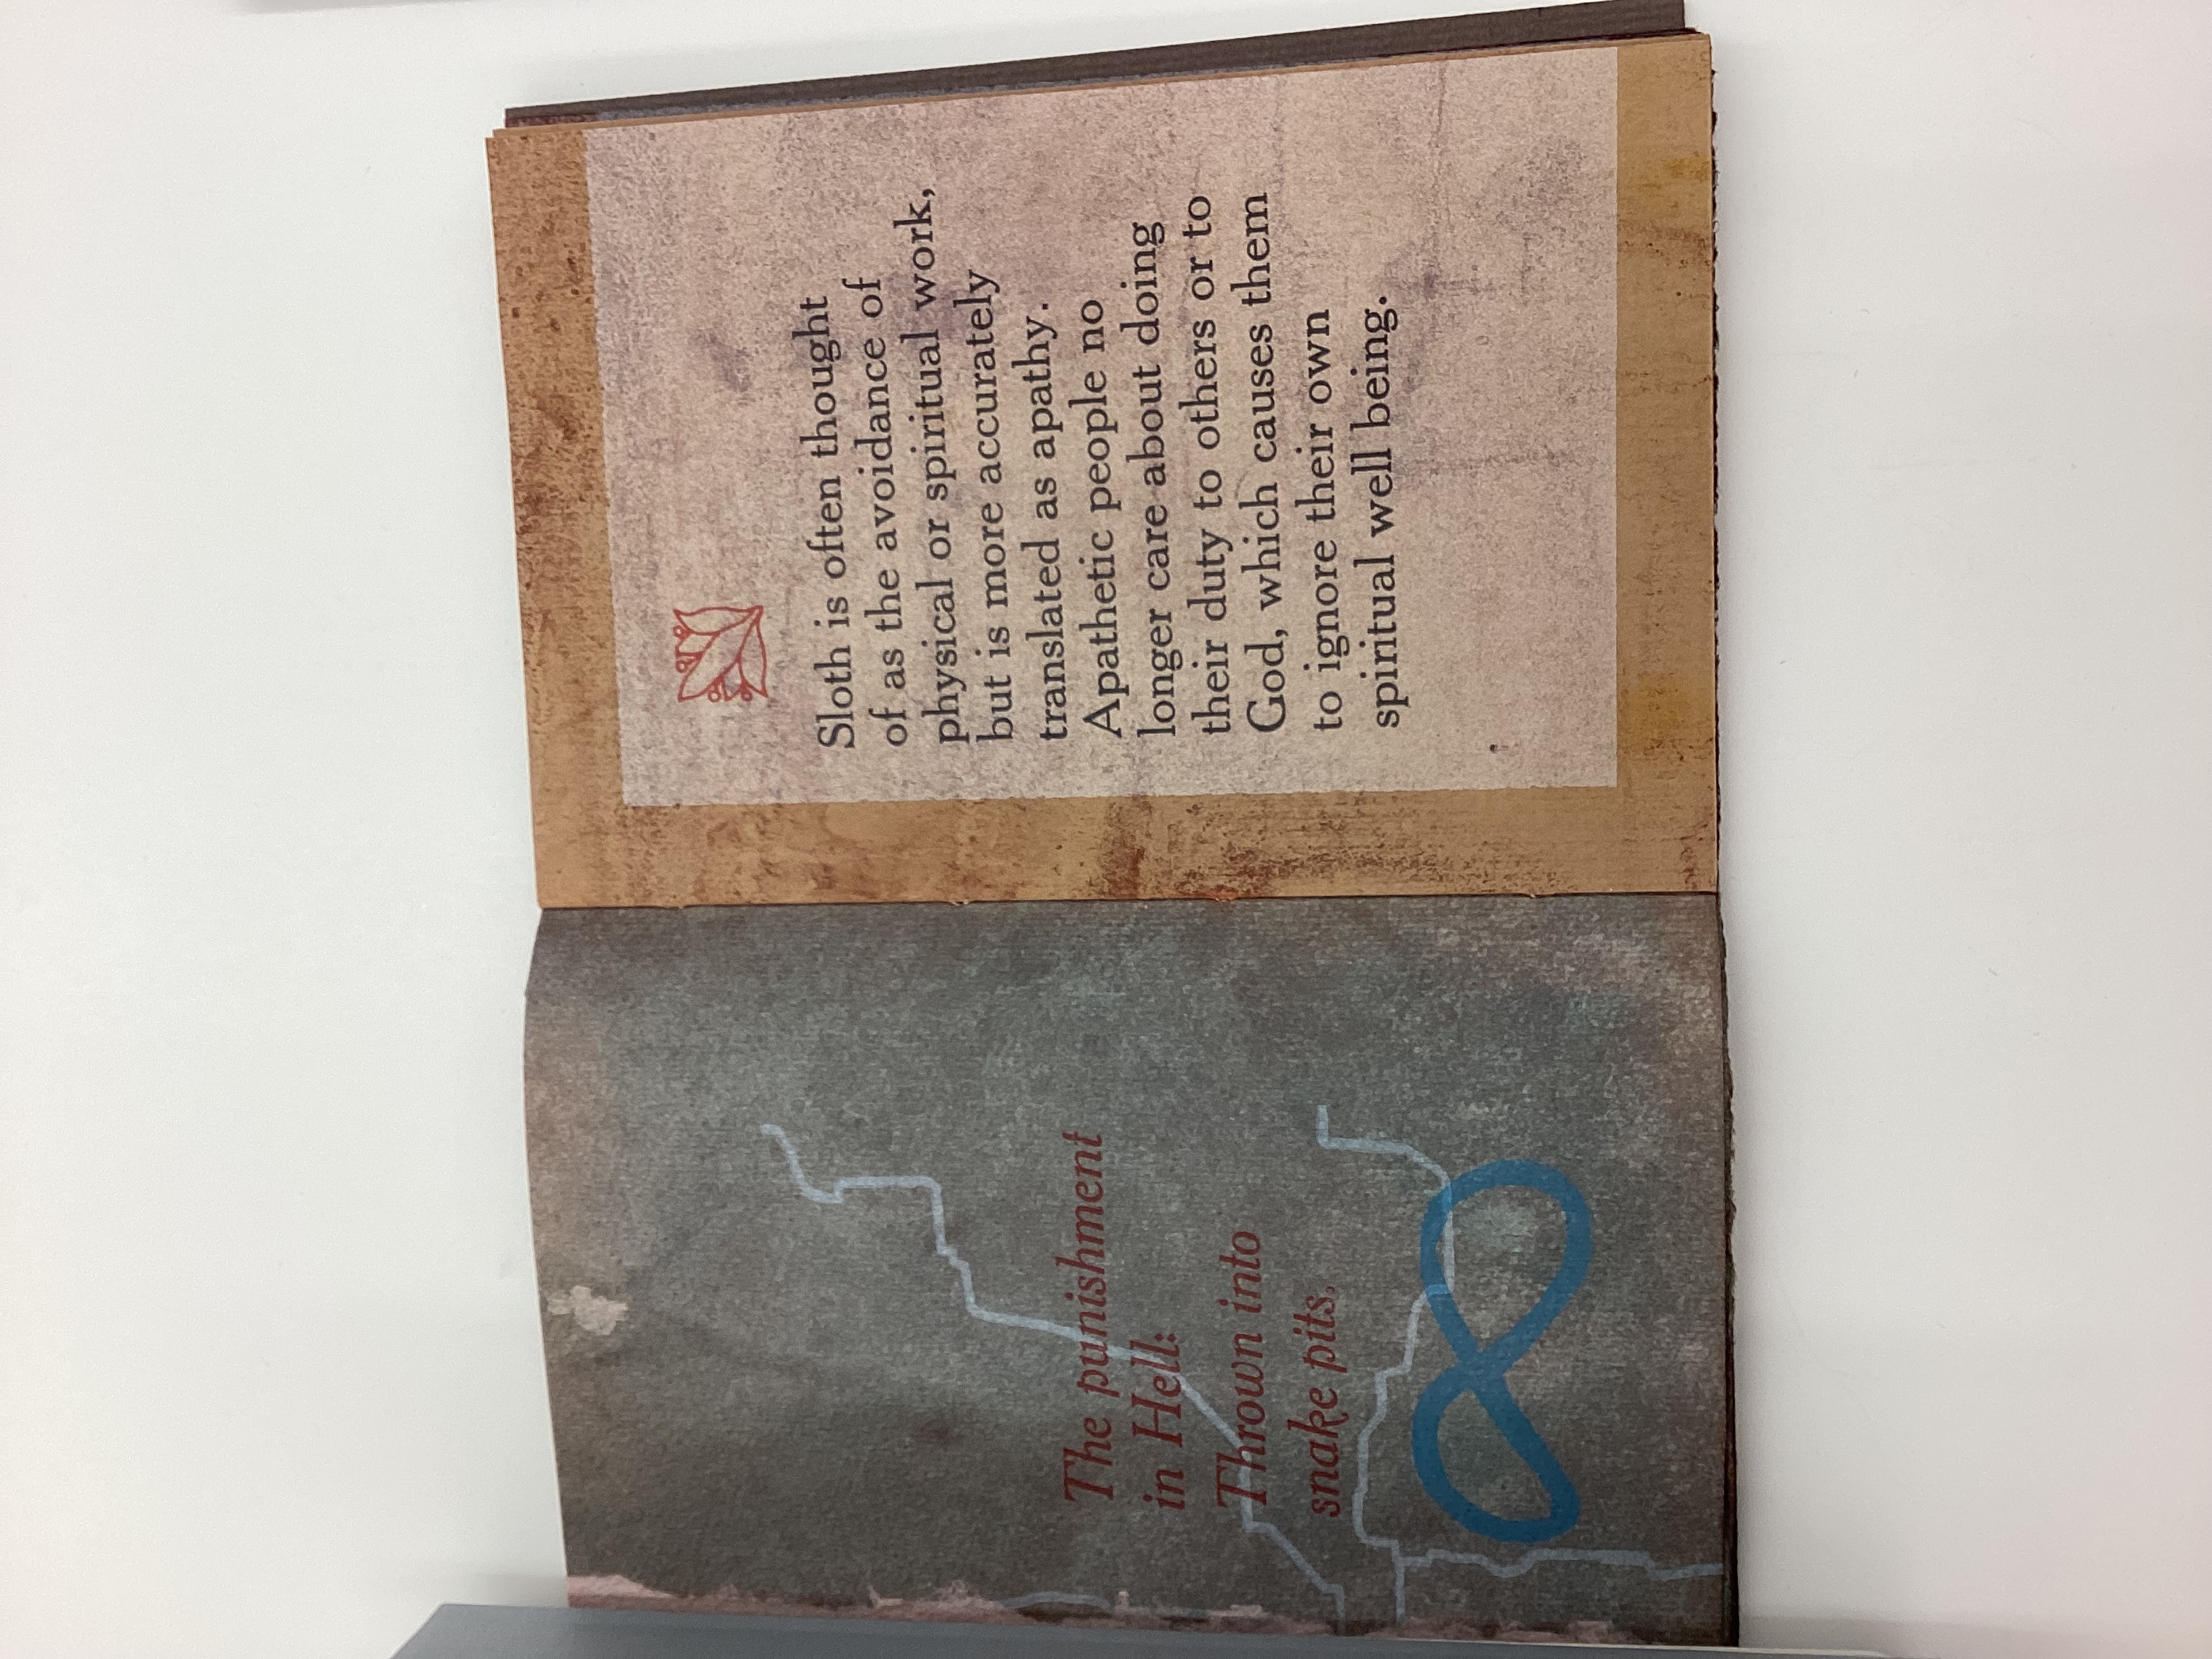 The punishment
in Hell:
Thrown into
snake pits.
Sloth is often thought
of as the avoidance of
physical or spiritual work,
but is more accurately
translated as apathy.
Apathetic people no
longer care about doing
their duty to others or to
God, which causes them
to ignore their own
spiritual well being.